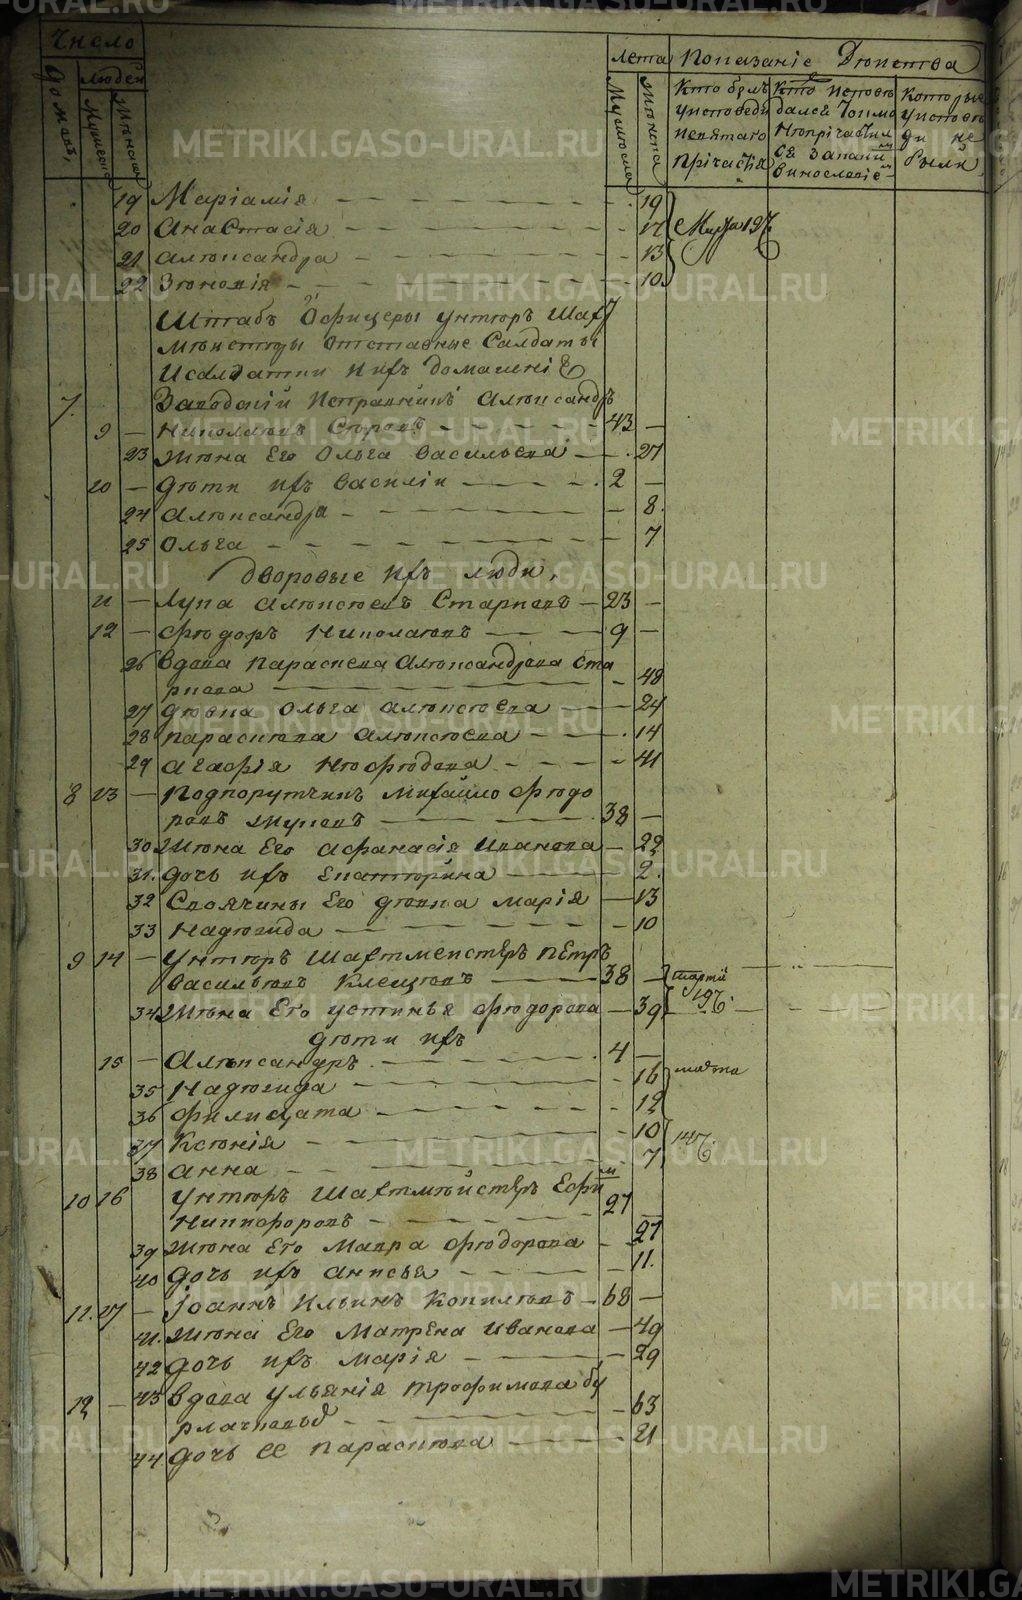 Число
домовъ
людей
Мужеска
Женска
лета
Мужеска
Женска
Показаніе Действа
Кто былъ у исповеди и святаго причастія
Кто исповедался толко не причастился за каким винословіе
Которые у исповеди не были
19 Маріамія 19
20 Анастасія 17
21 Александра 13
22 Зиновія 10
Марта 19
Штабъ Офицеры унтеръ Шахт
мейстеры отставные Салдаты
и салдатки и ихъ домашніе
7. Заводский Исправникъ Александръ
9 — Николаевъ 43 —
23 Жена Его Ольга Васильева 27
10 — дети ихъ Василій 2 —
24 Александра — 8.
25 Ольга — 7
дворовые ихъ люди,
11 — Лупа Алексеевъ Старковъ — 23 —
12 — Федоръ Николаевъ 9 —
26 Вдова Параскева Александрова Ста
ркова 48
27 девка Ольга Алексеева 24
28 Параскева Алексеева 14
29 Агафія Нефедова 41
8 13 — Подпорутчикъ Михайло Федо
ровъ 38 —
30 Жена Его Афанасія Иванова — 22
31. дочь ихъ Екатерина 2.
32 Своячины Его девка Марія — 13
33 Надежда 10
9 14 — Унтеръ Шахтмейстеръ Петръ
Васильевъ Клещевъ 38 —
Марта
19
34 Жена Его Устинья Федорова — 39
дети ихъ
15 — Александръ 4 —
35 Надежда 16
марта
36 Филицата 12
37 Ксенія 10
14
38 Анна 7
10 16 Унтеръ Шахтмейстеръ Ефим
Никифоровъ 27 —
39 Жена Его Мавра Федорова — 27
40 дочь ихъ Анисья 11.
11. 17 — Іоаннъ Ильинъ Копиловъ — 68 —
41. Жена Его Матрена Иванова — 49
42 дочь ихъ Марія 29
12 — 43 Вдова Ульянія Трофимова Бу
рлачковыд 63
44 дочь ее Параскева 21
METRIKI.GASO-URAL.RU